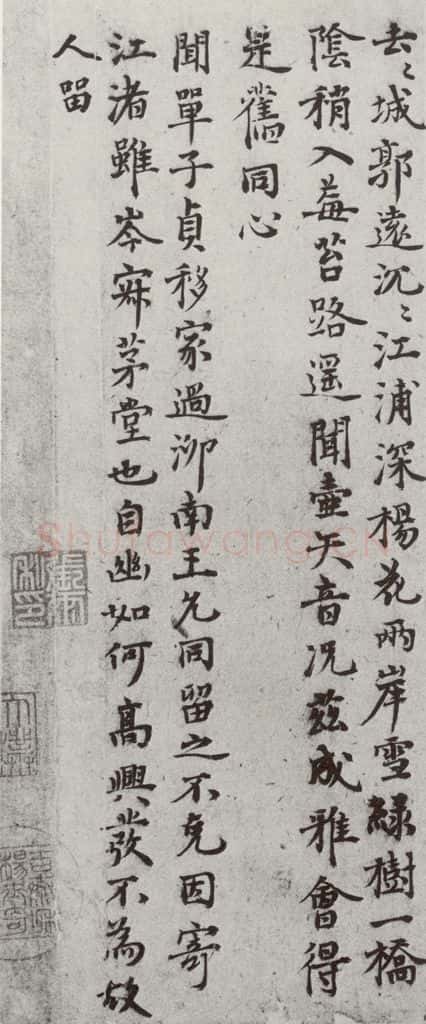 去〻城郭遠沉〻江浦深楊花兩岸雪綠樹一橋
陰稍入莓苔路遥聞壺天音況茲成雅會得
是舊同心
聞單子貞移家過泖南王允同留之不克因寄
江渚雖岑寂茅堂也自幽如何高興發不為故
人留
Shufawang.CN